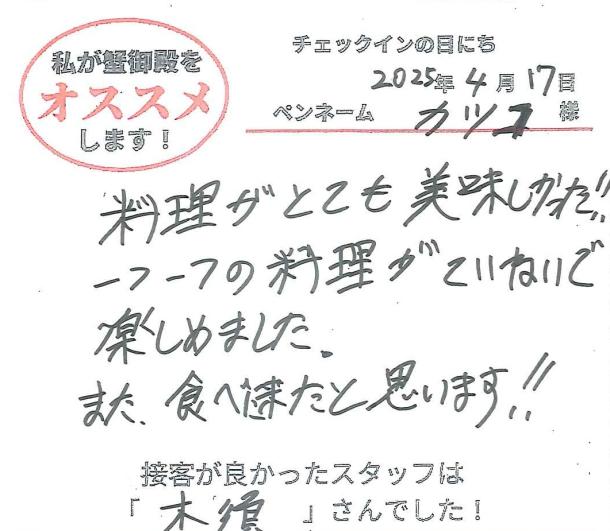 私が蟹御殿を
オススメ
します！
チェックインの日にち
2025年 4月 17日
ペンネーム カツコ 様
料理がとても美味しかった!!
一つ一つの料理がていねいで
楽しめました。
また、食べ来たと思います!!
接客が良かったスタッフは
「木須」さんでした！